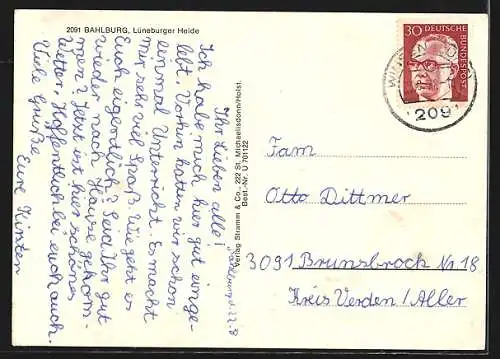 2091 BAHLBURG, Lüneburger Heide
Ihr Lieben alle!
Ich habe mich hier gut einge-
lebt. Vorhin hatten wir schon
einmal Unterricht. Es macht
mir sehr viel Spaß. Wie geht es
Euch eigentlich? Seid Ihr gut
wieder nach Hause gekom-
men? Jetzt ist hier schönes
Wetter, Hoffentlich bei euch auch.
Viele Grüße
Eure Kirsten
Verlag Stramm & Co., 222 St. Michaelisdonn/Holst.
Best.-Nr. U 701122
30 DEUTSCHE BUNDESPOST
WINSEN
209
Fam
Otto Dittmer
3091 Brunsbrock Nr. 18
Kreis Verden / Aller